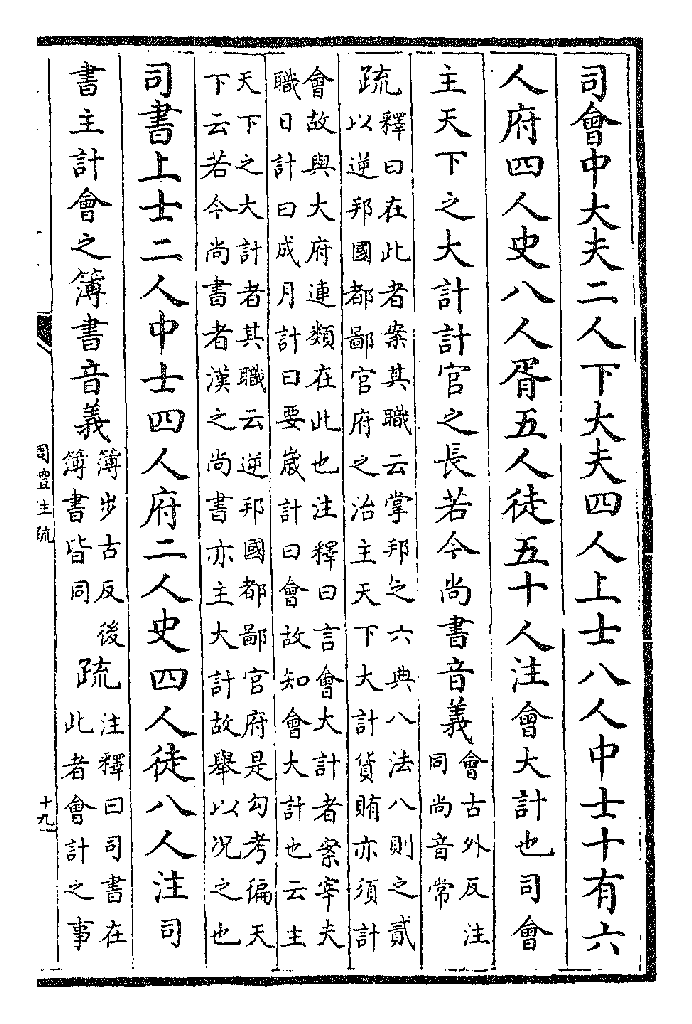 司會中大夫二人下大夫四人上士八人中士十有六
人府四人史八人胥五人徒五十人注會大計也司會
主天下之大計計官之長若今尚書音義會古外反注
同尚音常
疏釋曰在此者案其職云掌邦之六典八法八則之貳
以逆邦國都鄙官府之治主天下大計貨賄亦須計
會故與大府連類在此也注釋曰言會大計者案宰夫
職日計曰成月計曰要歲計曰會故知會大計也云主
天下之大計者其職云逆邦國都鄙官府是勾考徧天
下云若今尚書者漢之尚書亦主大計故舉以况之也
司書上士二人中士四人府二人史四人徒八人注司
書主計會之簿書音義簿步古反後
簿書皆同
疏注釋曰司書在
此者會計之事
十九